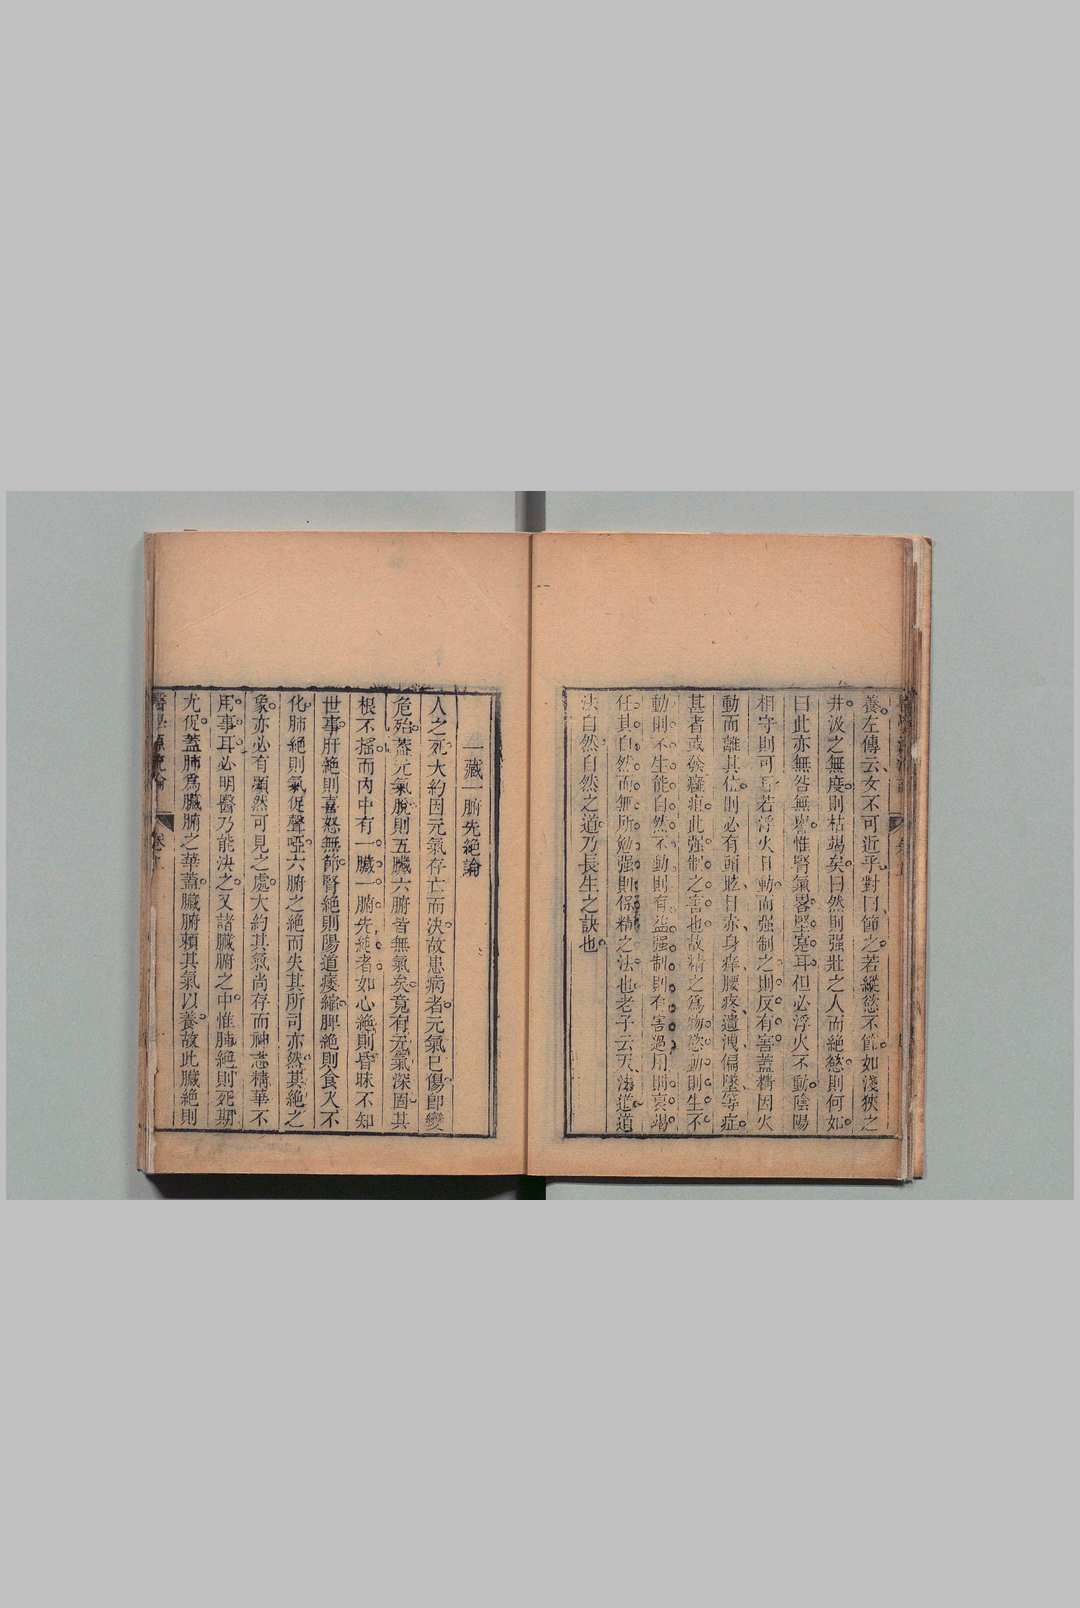 養左傳云女不可近乎對曰節之若縱慾不節如淺狹之
井汲之無度則枯竭矣曰然則强壯之人而絕慾則何如
曰此亦無咎無譽惟腎氣畧堅寔耳但必浮火不動陰陽
相守則可耳若浮火日動而强制之則反有害蓋精因火
動而離其位則必有頭眩目赤身痒腰疼遺洩偏墜等症
甚者或發癰疽此强制之害也故精之爲物慾動則生不
動則不生能自然不動則有益强制則有害過用則衰竭
任其自然而無所勉强則保精之法也老子云天法道道
法自然自然之道乃長生之訣也
一藏一腑先絕論
人之死大約因元氣存亡而決故患病者元氣已傷卽變
危殆蓋元氣脫則五臟六腑皆無氣矣竟有元氣深固其
根不搖而內中有一臟一腑先絕者如心絕則昏昧不知
世事肝絕則喜怒無節腎絕則陽道痿縮脾絕則食入不
化肺絕則氣促聲啞六腑之絕而失其所司亦然其絕之
象亦必有顯然可見之處大約其氣尚存而神志精華不
用事耳必明醫乃能決之又諸臟腑之中惟肺絕則死期
尤促蓋肺爲臟腑之華蓋臟腑賴其氣以養故此臟絕則
醫學源流論 卷上